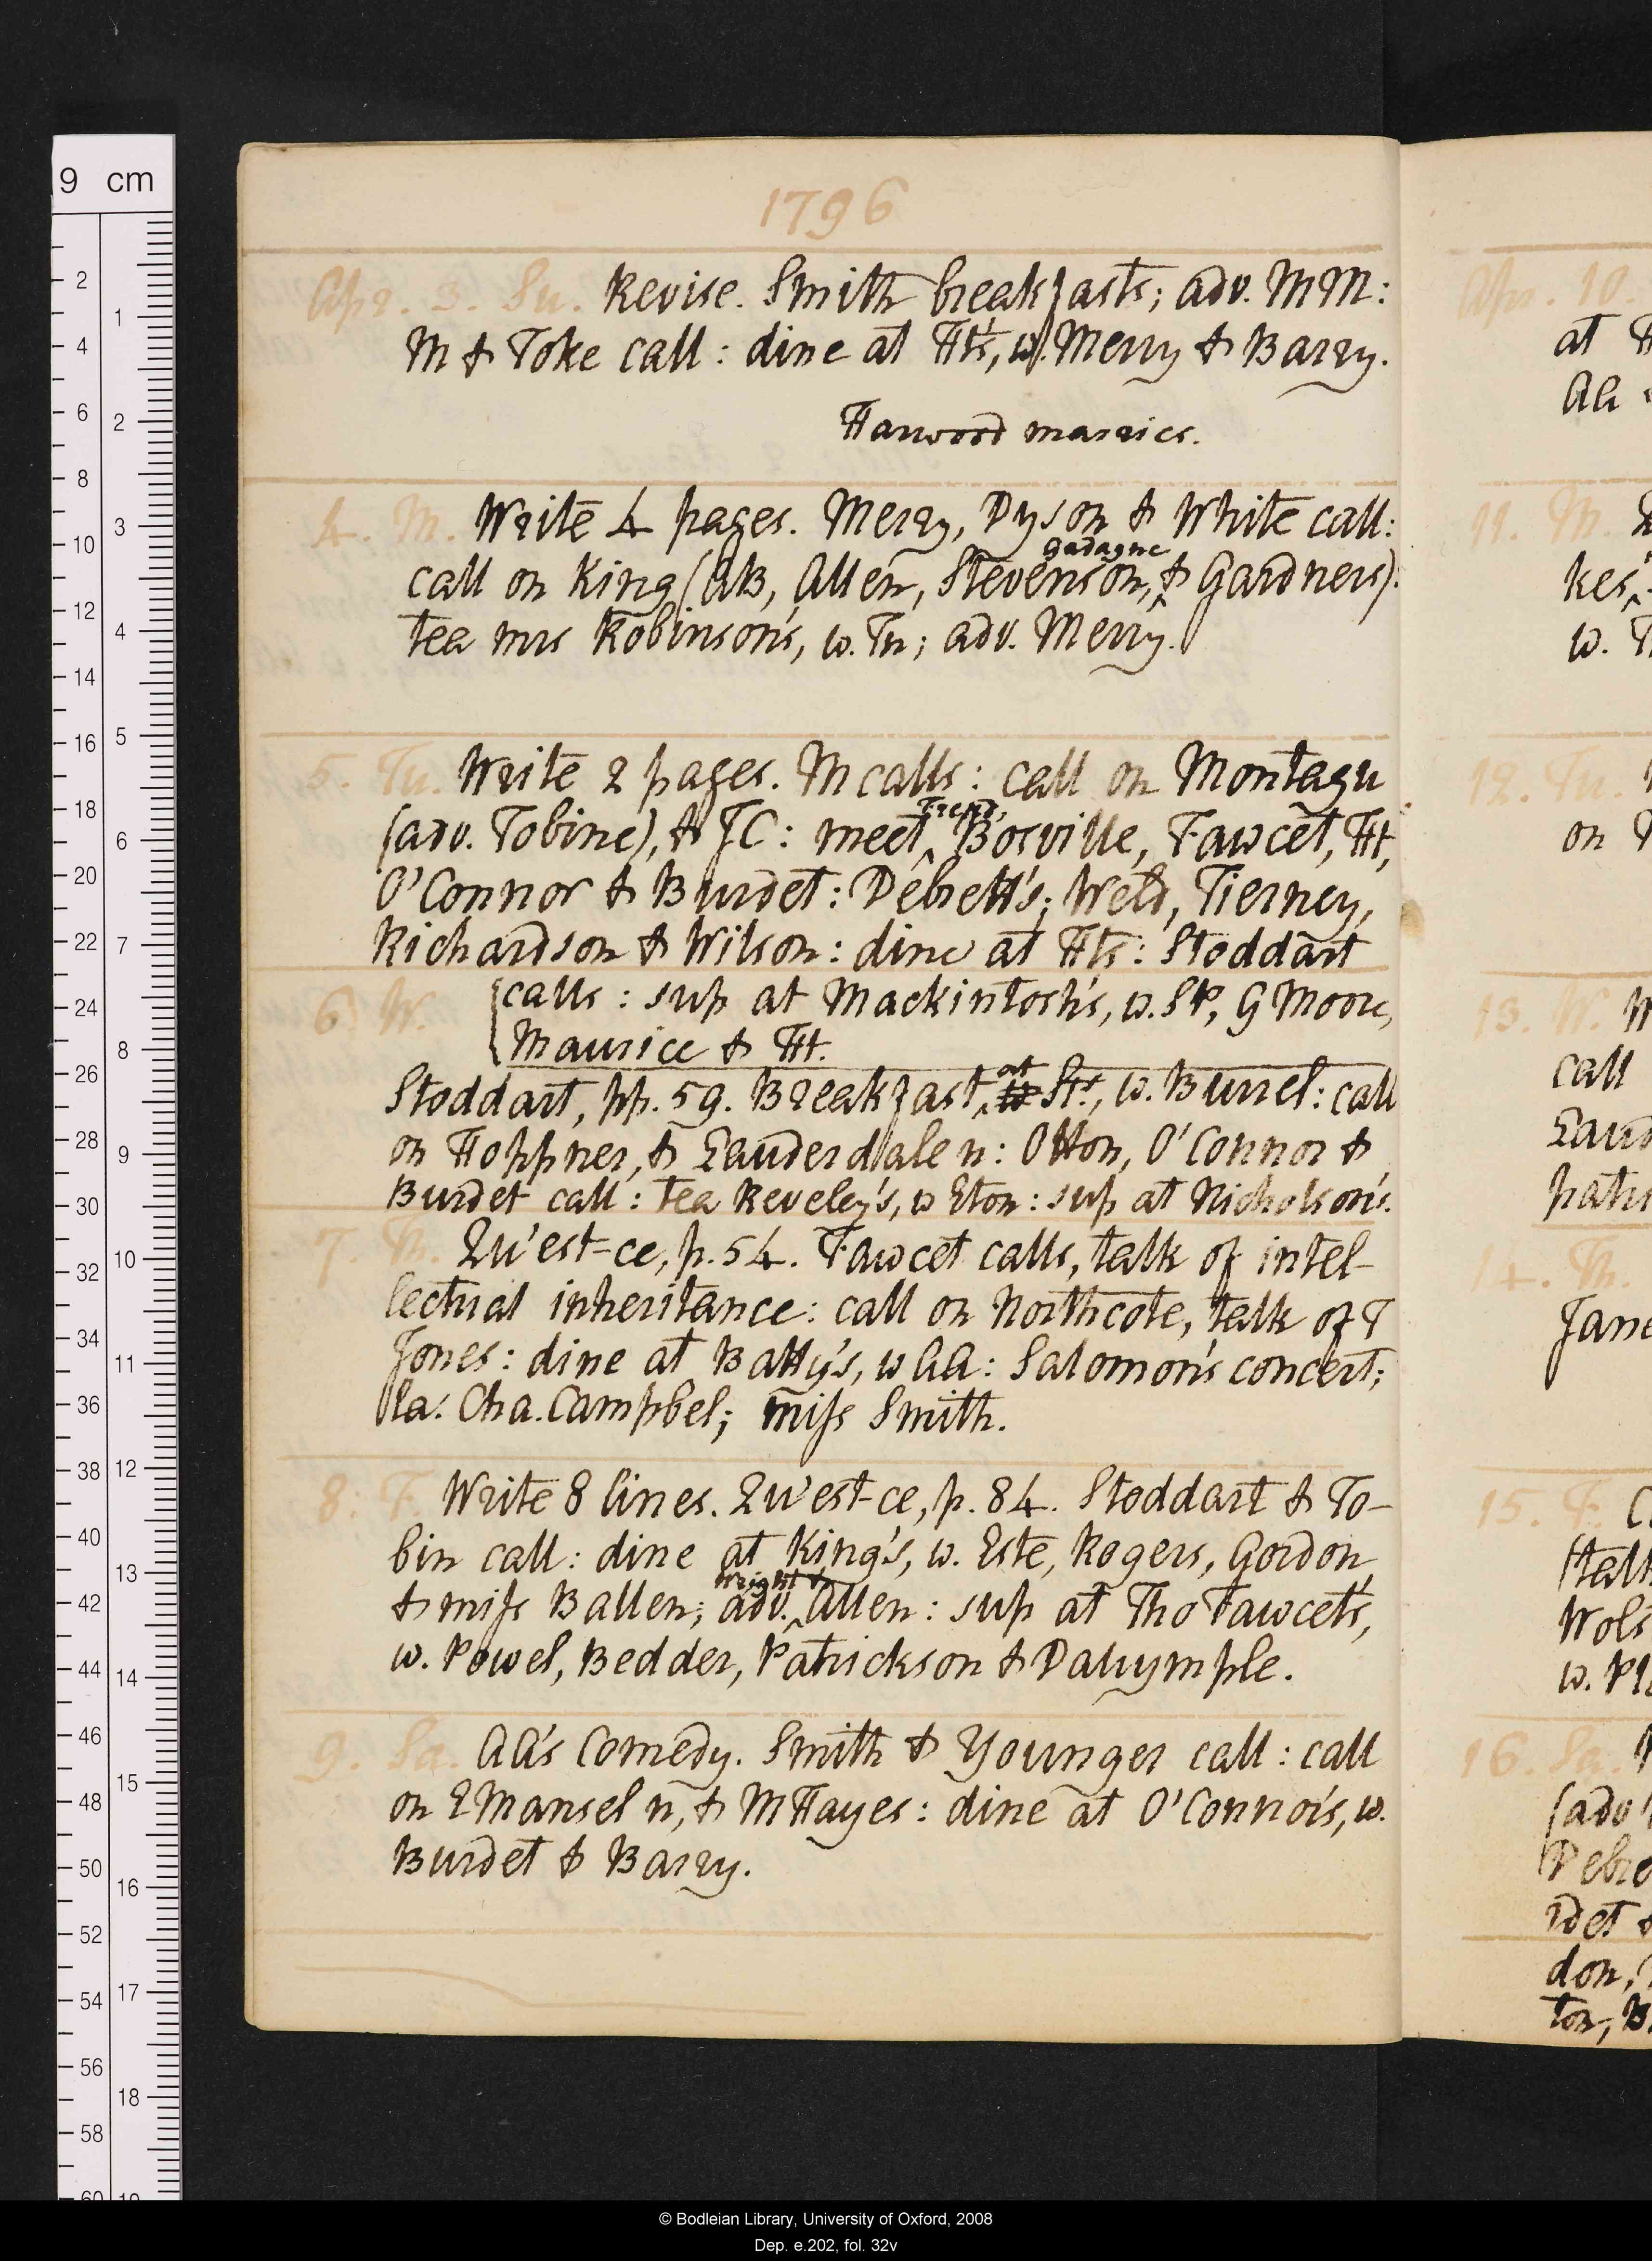 1796
Apr. 3. Su. Revise. Smith breakfasts; adv. MM:
M & Toke call: dine at Ht's, w. Merry & Barry.
Harwood marries.
4. M. Write 4 pages. Merry, Dyson & White call:
gadagne
call on King (AB, Allen, Stevenson, ^ & Gardners).
tea mrs Robinson's, w. Tn; adv. Merry.
5. Tu. Write 2 pages. M calls: call on Montagu
Frend,
(adv. Tobine), & JC: meet ^ Bosville, Fawcet, Ht,
O'Connor & Burdet: Debrett's; Weld, Tierney,
Richardson & Wilson: dine at Hts: Stoddart
calls: sup at Mackintosh's, w. SP, G Moore,
Maurice & Ht.
6 W.
at
Stoddart, pp. 59. Breakfast, ^ w Sts, w. Burrel: call
on Hoppner, & Lauderdale n: Otton, O'Connor &
Burdet call: tea Reveley's, w Eton: sup at Nicholson's.
7. Th. Qu'est-ce, p. 54. Fawcet calls, talk of intel-
lectual inheritance: call on Northcote, talk of T
Jones: dine at Batty's, w AA: Salomon's concert;
la. Cha. Campbel; miss Smith.
8. F. Write 8 lines. Qu'est-ce, p. 84. Stoddart & To-
bin call: dine at King's, w. Este, Rogers, Gordon
Wright &
& miss Ballen; adv. ^ Allen: sup at Tho Fawcet's,
w. Powel, Bedder, Patrickson & Dalrymple.
9. Sa. AA's Comedy. Smith & Younger call: call
on E Mansel n, & M Hayes: dine at O'Connor's, w.
Burdet & Barry.
Apr. 10.
at
11. M.
kes,
w. T
12. Tu.
on
13. W.
call
14. Th.
Jane
15. F.
w. Pl
16. Sa.
(adv
don,
ton, B
9 cm
© Bodleian Library, University of Oxford, 2008
Dep. e.202, fol. 32v